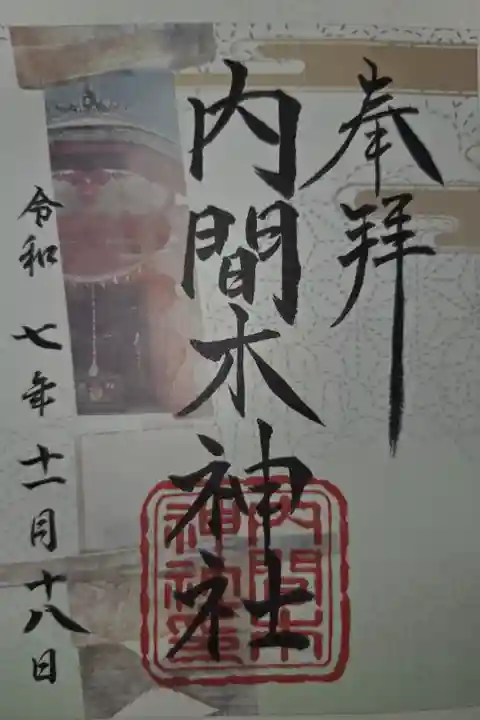 奉拝
内間木神社
内間木
神社璽
令和七年十一月十八日